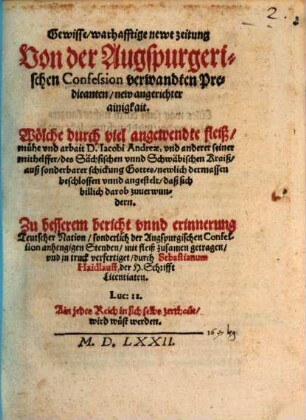 2.
Gewisse/warhafftige newe zeitung
Von der Augspurgeri-
schen Confession verwandten Pre-
dicanten/new angerichter
ainigkait.
Wölche durch viel angewendte fleiß/
mühe vnd arbait D. Jacobi Andreæ, vnd anderer seiner
mithelffer/des Sächsischen vnnd Schwäbischen Kraiß/
auß sonderbarer schickung Gottes/newlich dermassen
beschlossen vnnd angestelt/daß sich
billich darob zuuerwun-
dern.
Zu besserem bericht vnnd erinnerung
Teutscher Nation/sonderlich der Augspurgischen Confes-
sion anhengigen Stenden/mit fleiß zusamen getragen/
vnd in truck verfertiget/durch Sebastianum
Haidlauff, der H. Schrifft
Licentiaten.
Luc: 11.
Ain jedes Reich in sich selbs zerthailt/
wird wüst werden.
M. D. LXXII.